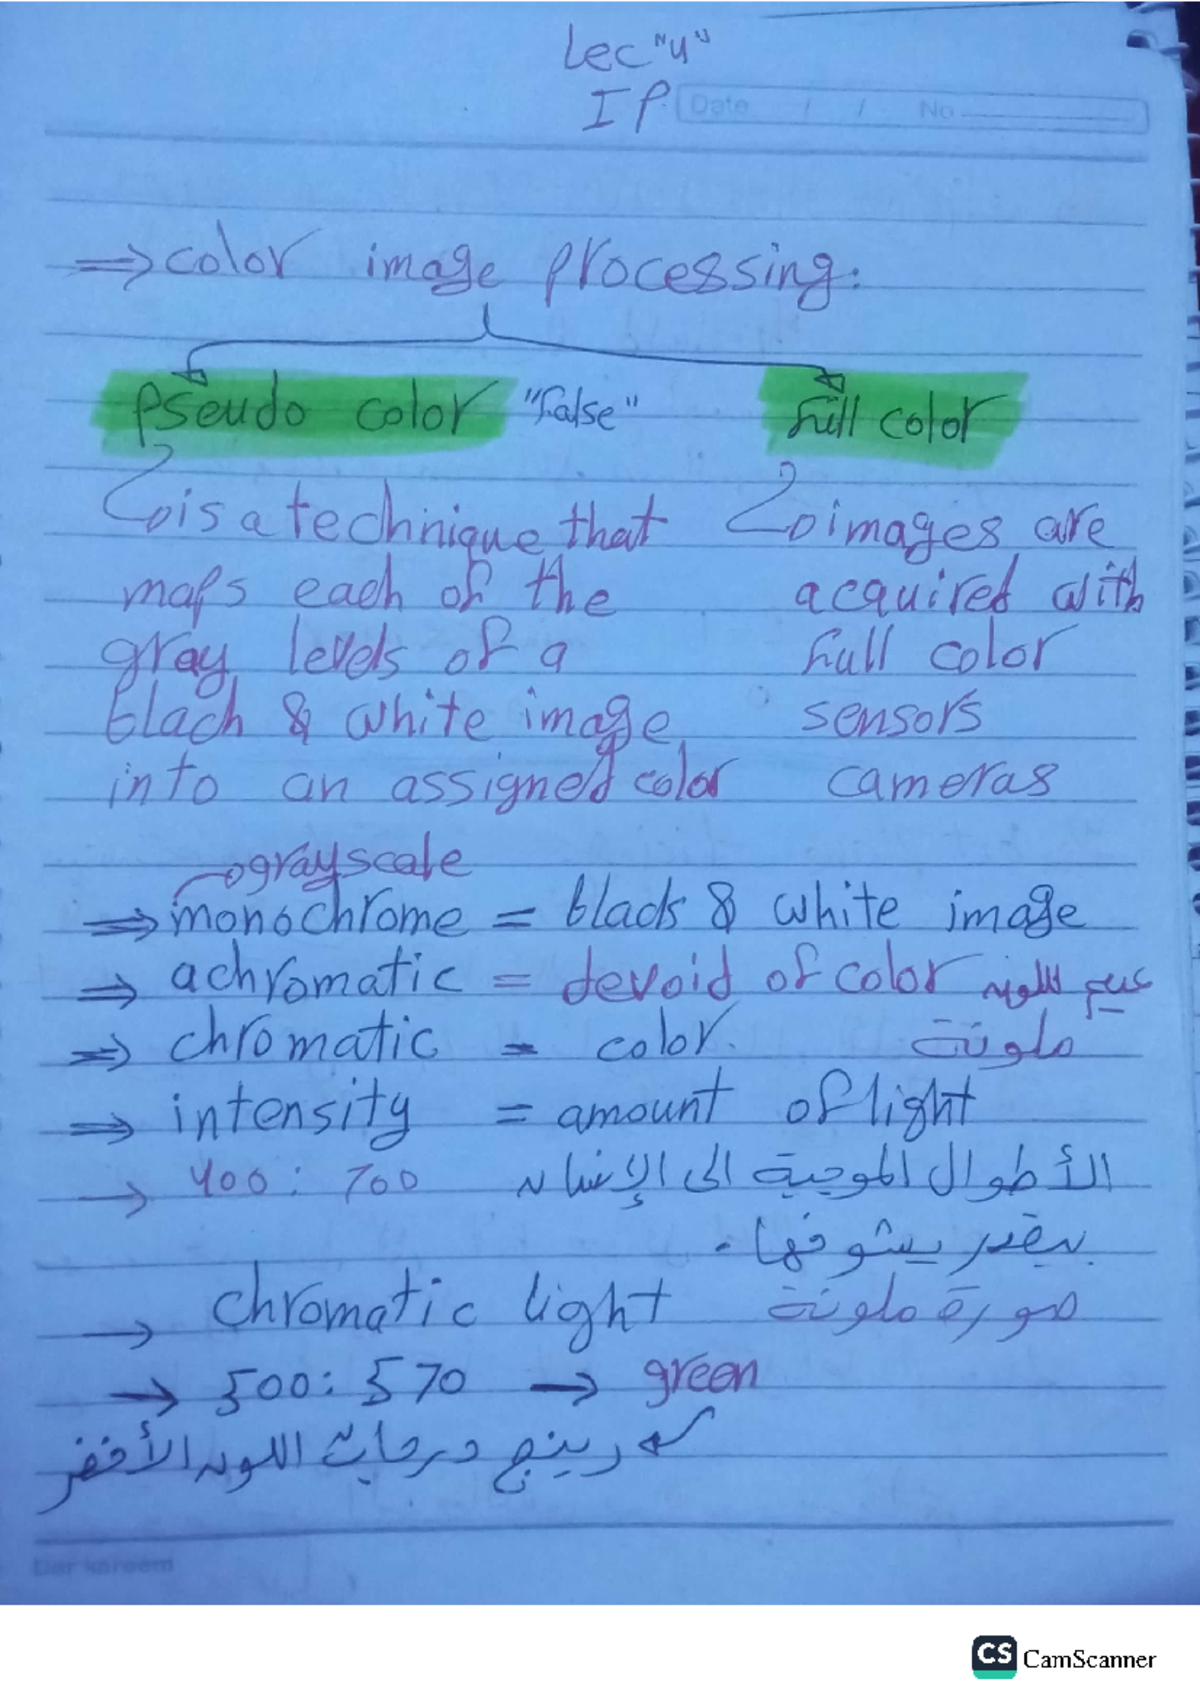 Lec "4"
IP
Date / / No
⇒ color image processing:
Pseudo color "false"
is a technique that
maps each of the
gray levels of a
blach & white image
into an assigned color
full color
images are
acquired with
full color
sensors
cameras
grayscale
⇒ monochrome = black & white image
⇒ achromatic = devoid of color عديم اللون
⇒ chromatic = color. ملونة
⇒ intensity = amount of light
→ 400 : 700 الأطوال الموجية الى الإنسان
بيقدر يشوفها.
→ chromatic light صورة ملونة
→ 500 : 570 → green
رينج درجات اللون الأخضر
Dar kareem
CS CamScanner